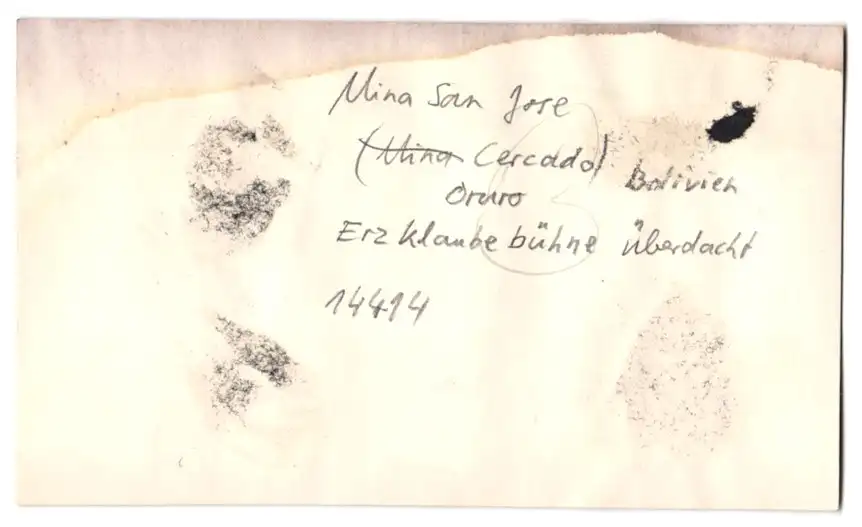 Mina San Jose
(Mina Cercado) Bolivien
Oruro
Erzklaubebühne überdacht
14414